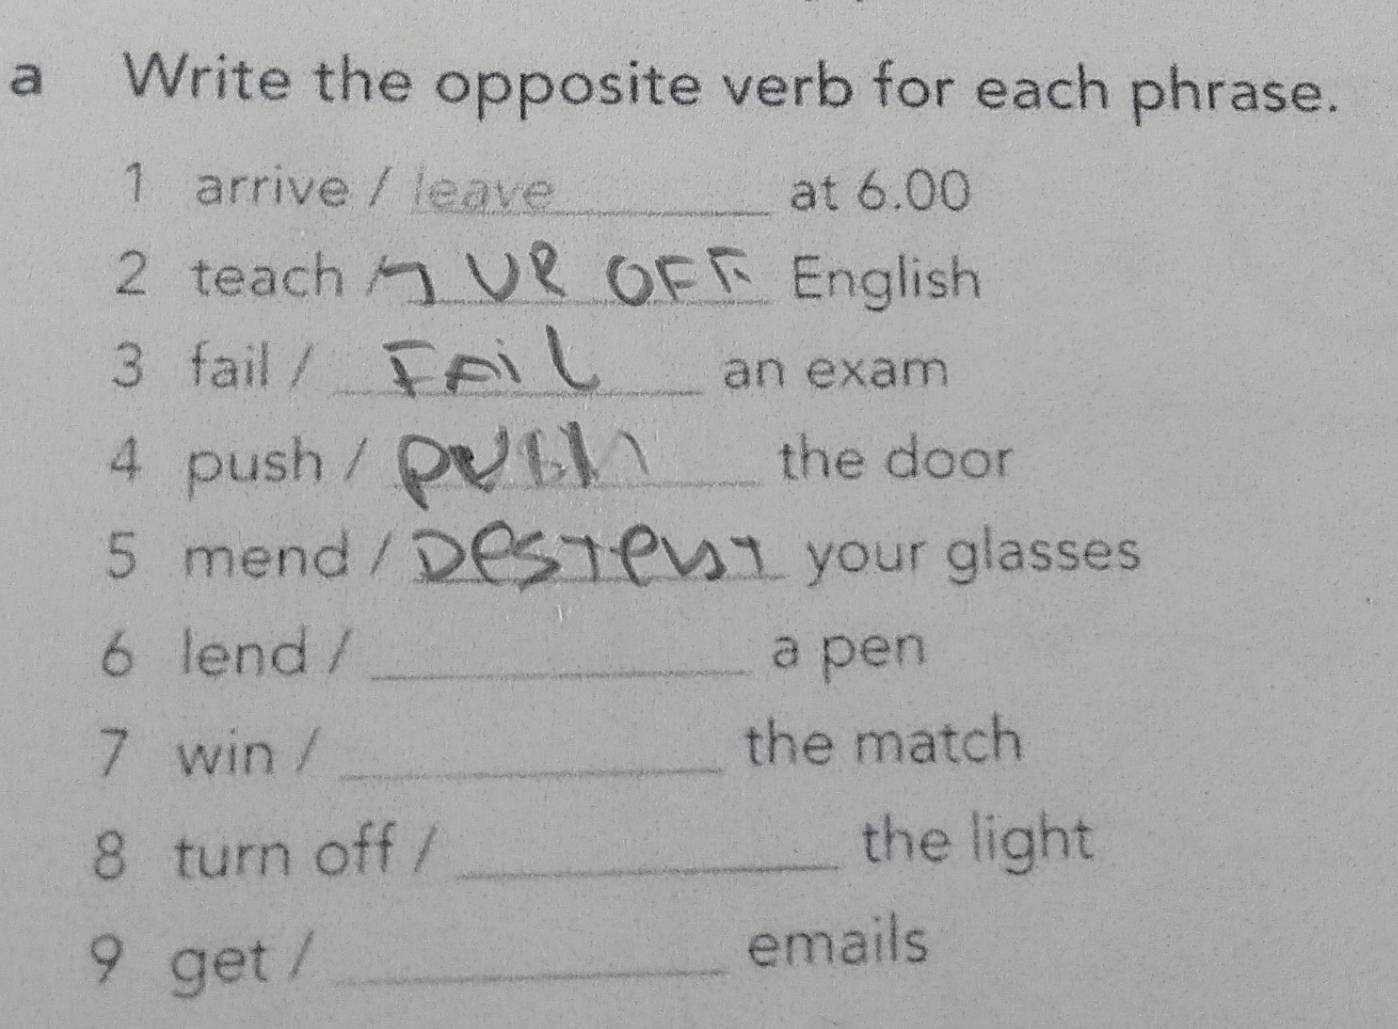 a Write the opposite verb for each phrase.
1 arrive / leave at 6.00
2 teach / UR OFF English
3 fail / FAiL an exam
4 push / the door
5 mend / your glasses
6 lend / a pen
7 win / the match
8 turn off / the light
9 get / emails